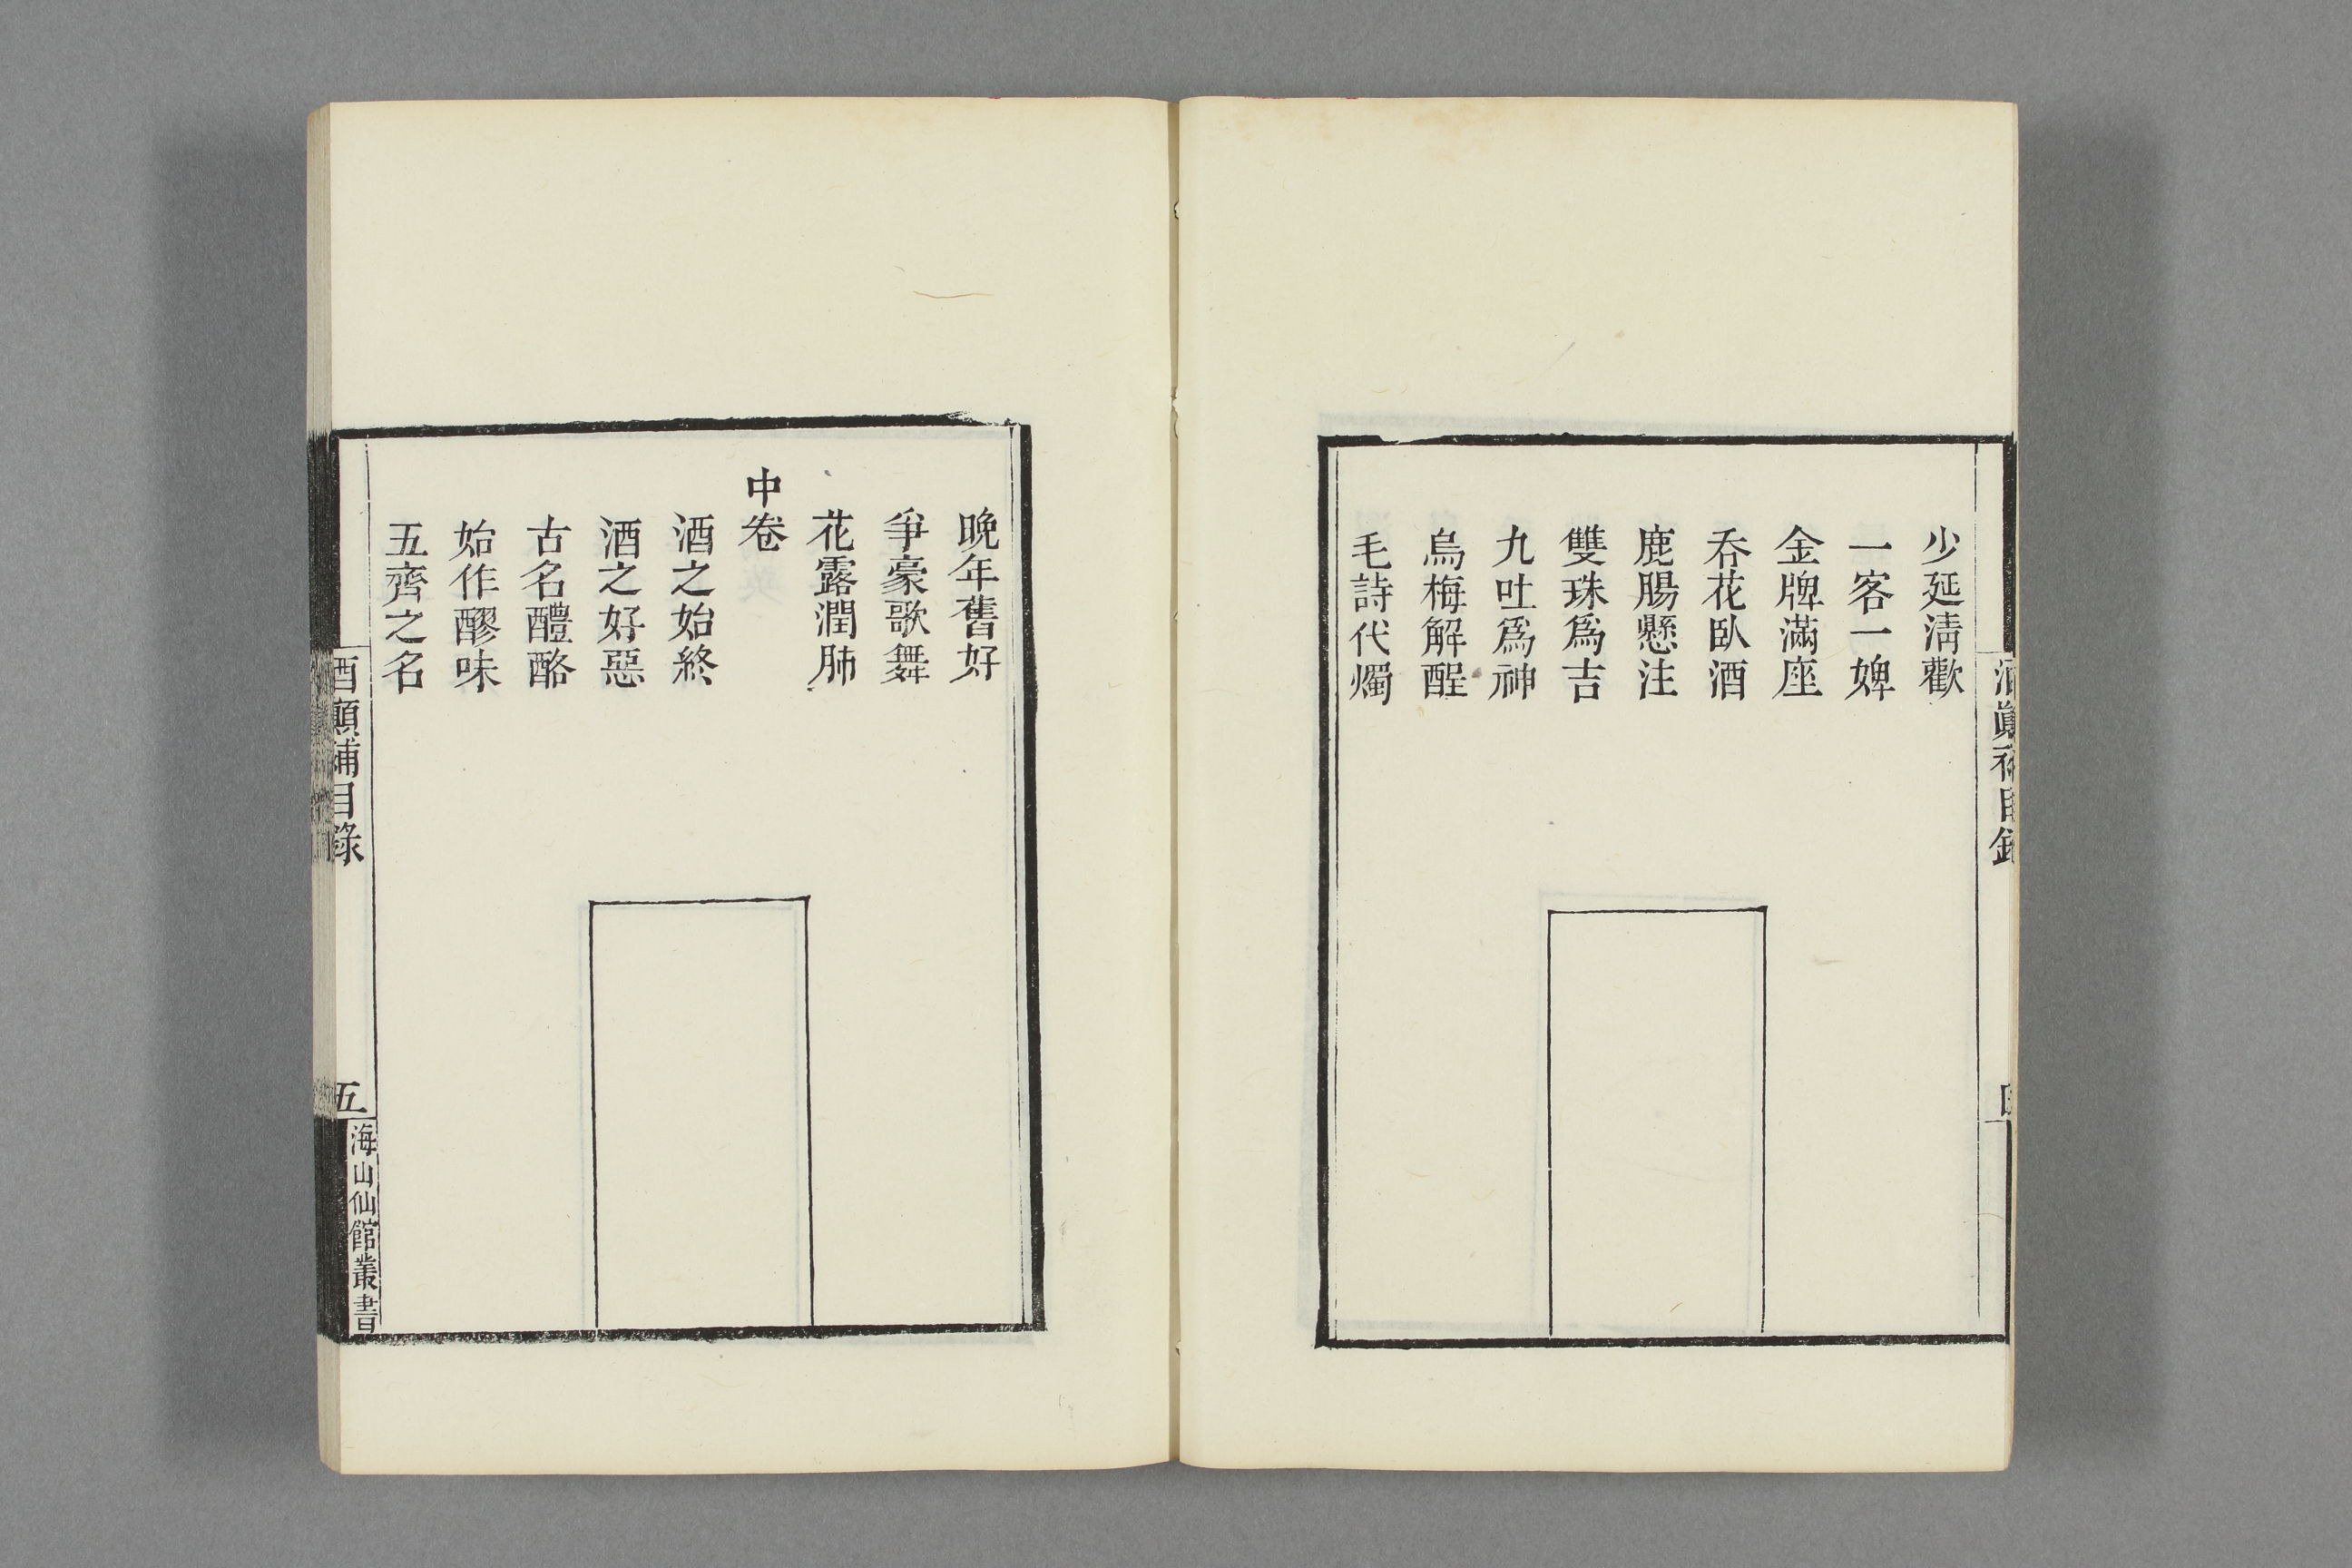 少延淸歡
一客一婢
金牌滿座
吞花臥酒
鹿腸懸注
雙珠爲吉
九吐爲神
烏梅解酲
毛詩代燭
晚年舊好
爭豪歌舞
花露潤肺
中卷
酒之始終
酒之好惡
古名醴酪
始作醪味
五齊之名
酒顚補目錄
五
海山仙館叢書